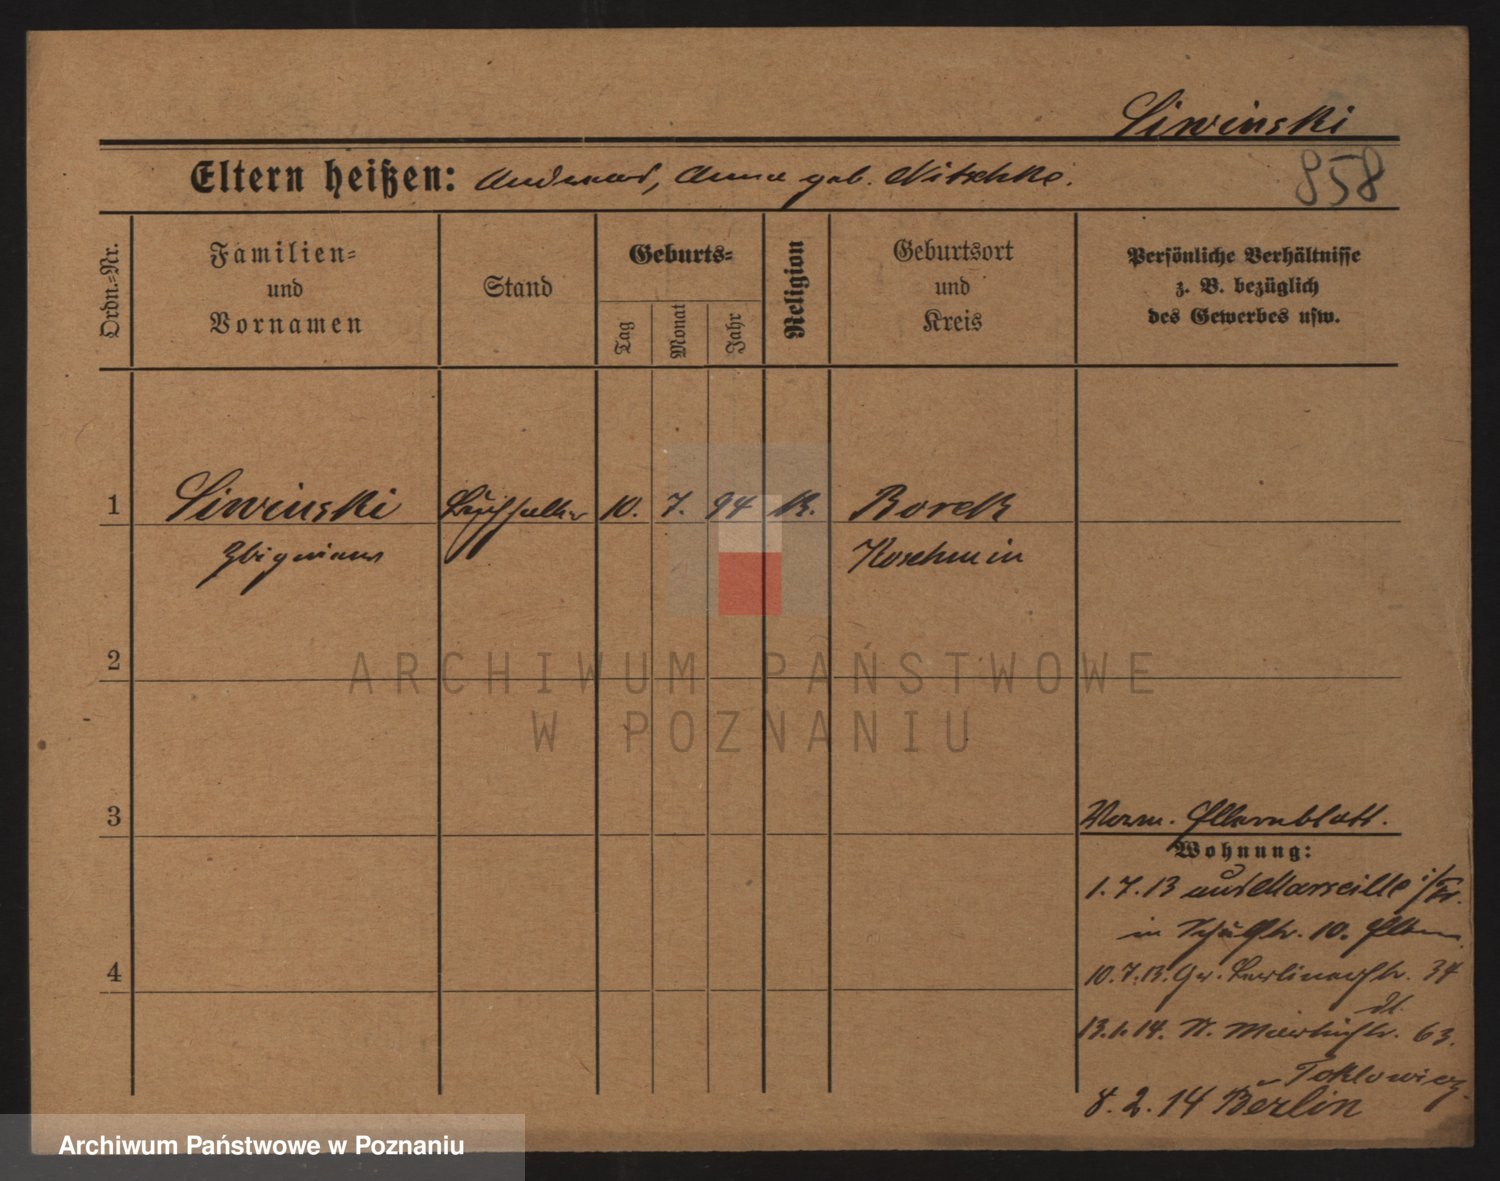 Siwinski
Eltern heißen: Andreas, Anna geb. Nitschke.
858
Ordn.=Nr.
Familien=
und
Vornamen
Stand
Geburts=
Tag
Monat
Jahr
Religion
Geburtsort
und
Kreis
Persönliche Verhältnisse
z. B. bezüglich
des Gewerbes usw.
1 Siwinski Buchhalter 10. 7. 94 K. Borek
Zbigniew Koschmin
2
3
4
Vorm. Elternblatt.
Wohnung:
1.7.13 aus Marseille i/Fr.
in 10. Eltern
10.7.13. Gr. Berlinerstr. 34
13.1.14. St. Martinstr. 63.
8.2.14 Berlin
ARCHIWUM PAŃSTWOWE
W POZNANIU
Archiwum Państwowe w Poznaniu